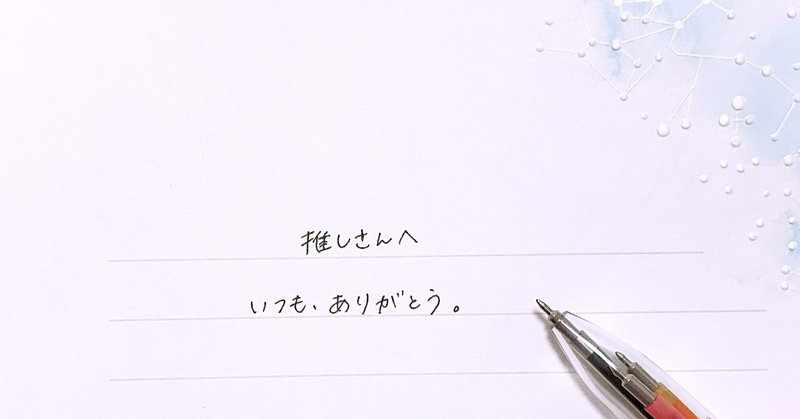 推しさんへ
いつも、ありがとう。